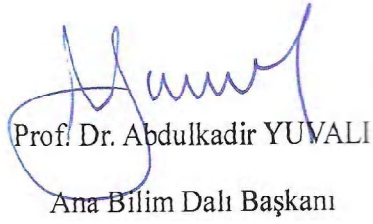 Prof. Dr. Abdulkadir YUVALI
Ana Bilim Dalı Başkanı